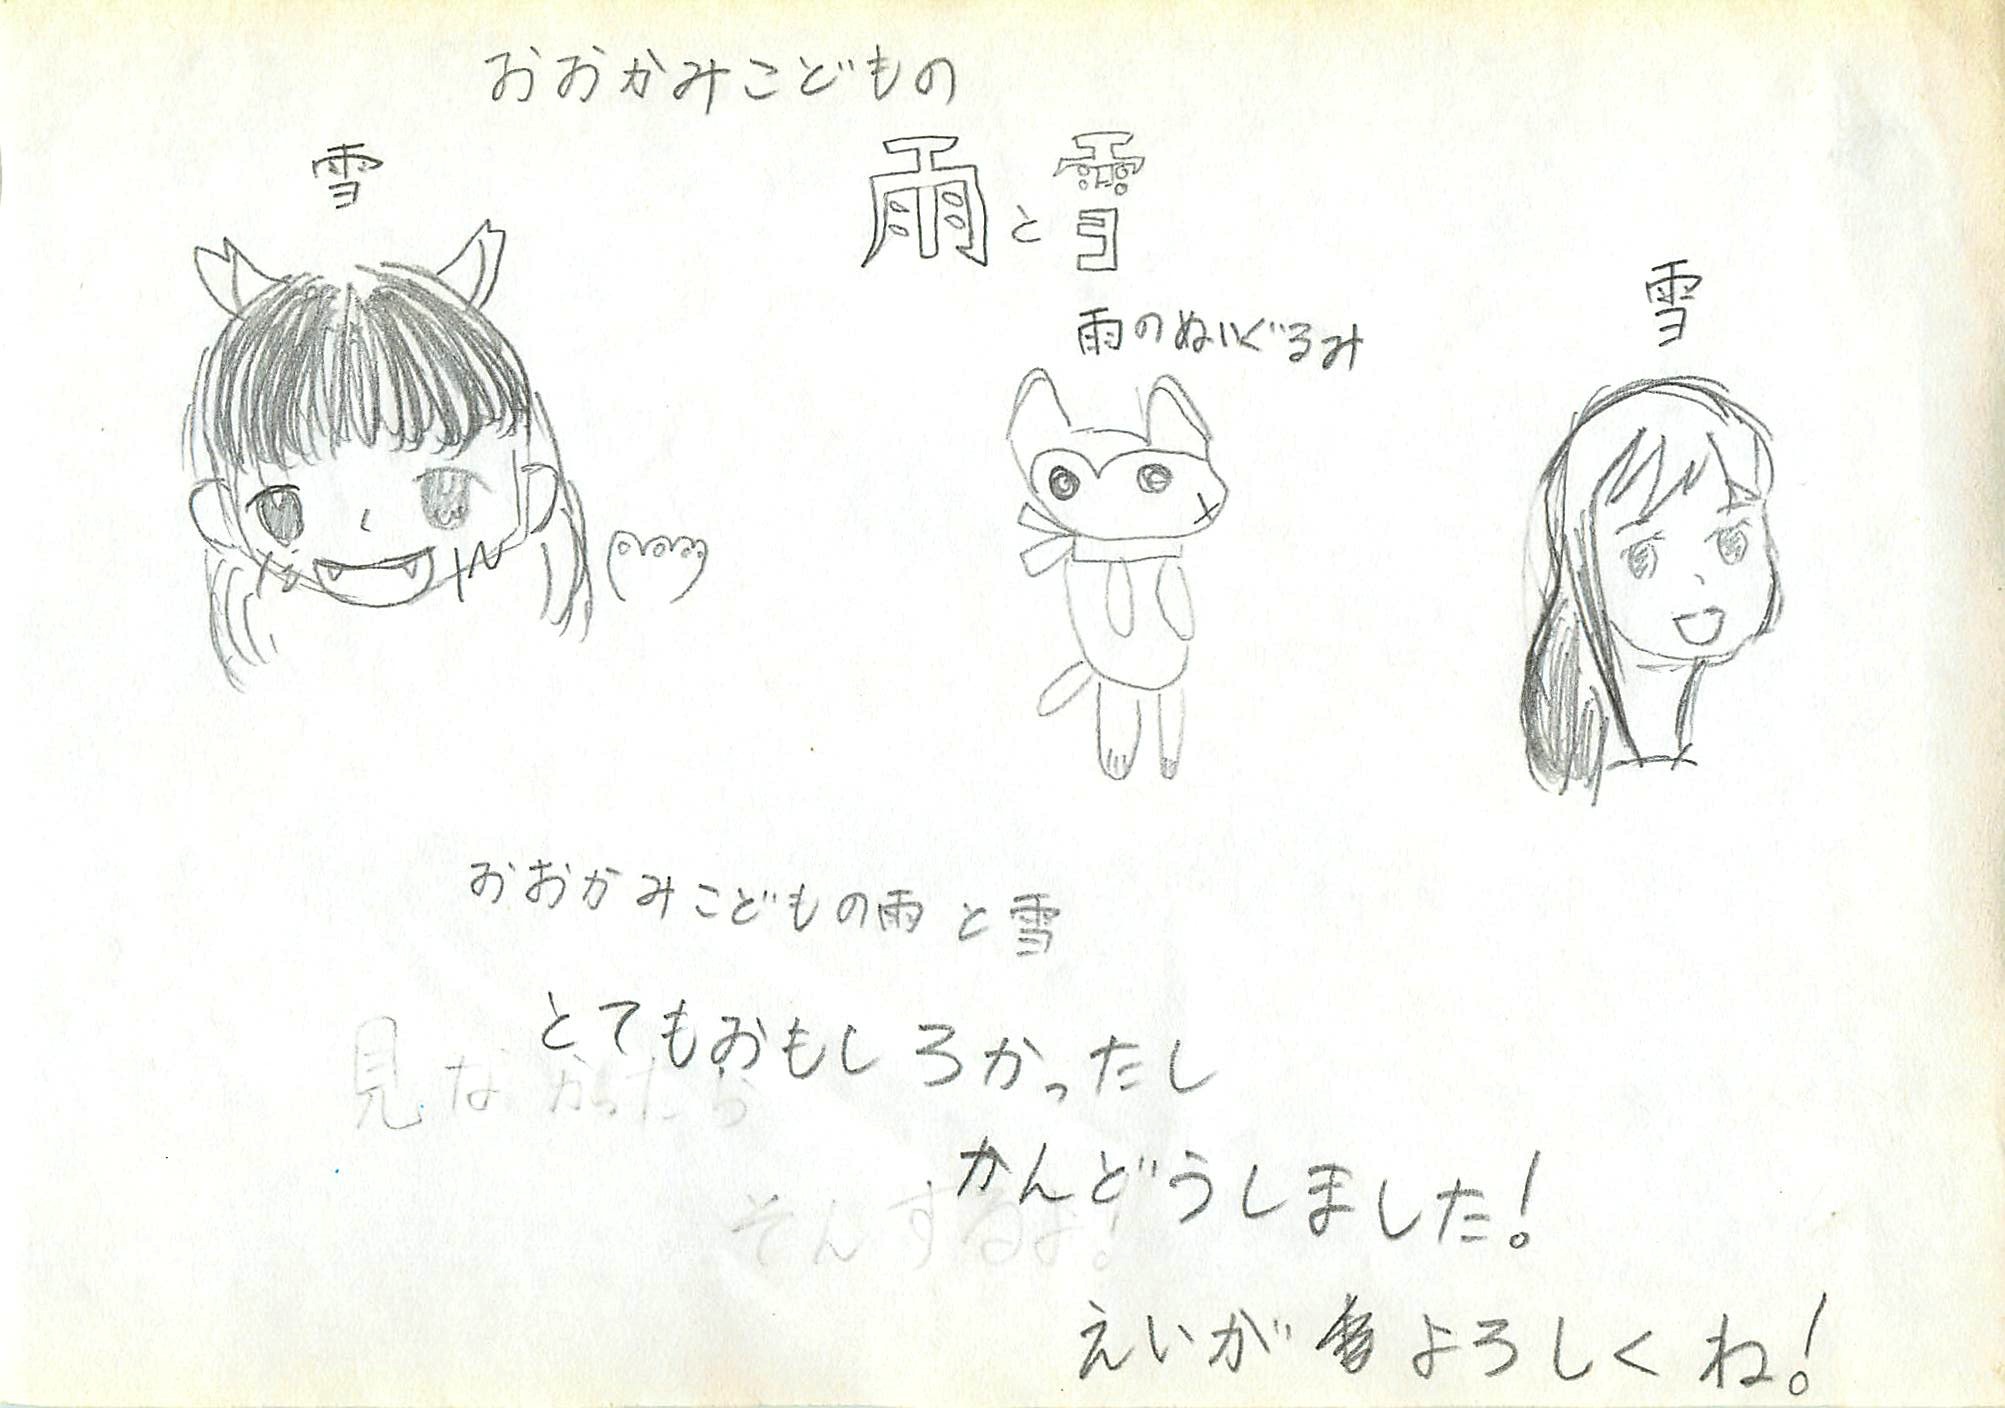 おおかみこどもの
雨と雪
雪
雨のぬいぐるみ
雪
おおかみこどもの雨と雪
とてもおもしろかったし
見なかったら
かんどうしました!
そんするよ!
えいが よろしくね!